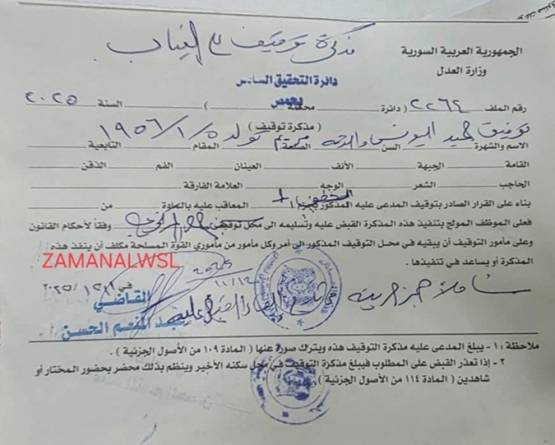 الجمهورية العربية السورية
وزارة العدل
مذكرة توقيف غيابي
دائرة التحقيق السادس
بحمص
رقم الملف ٢٢٦٤ ( دائرة محكمة ) السنة ٢٠٢٥
( مذكرة توقيف )
توفيق حميد اليونس والدته مريم تولد ١٩٥٦/١/٥
الاسم والشهرة السن الصنعة المقام التابعية
القامة الجبهة الأنف العينان الفم الذقن
الحاجب الشعر الوجه العلامة الفارقة
بناء على القرار الصادر بتوقيف المدعى عليه المذكور بجرم المعاقب عليه بالمادة من
فعلى الموظف المولج بتنفيذ هذه المذكرة القبض عليه وتسليمه الى محل توقيف وفقاً لأحكام القانون
وعلى مأمور التوقيف أن يبقيه في محل التوقيف المذكور الى أمر وكل مأمور من مأموري القوة المسلحة مكلف أن ينفذ هذه
المذكرة أو يساعد في تنفيذها .
ZAMANALWSL
القاضي
عبد المنعم الحسن
ملاحظة : ١ - يبلغ المدعى عليه هذه مذكرة التوقيف ويترك صورة عنها ( المادة ١٠٩ من الأصول الجزئية ) .
٢ - إذا تعذر القبض على المطلوب فيبلغ مذكرة التوقيف في محل سكنه الأخير وينظم بذلك محضر بحضور المختار أو
شاهدين ( المادة ١١٤ من الأصول الجزئية ) .